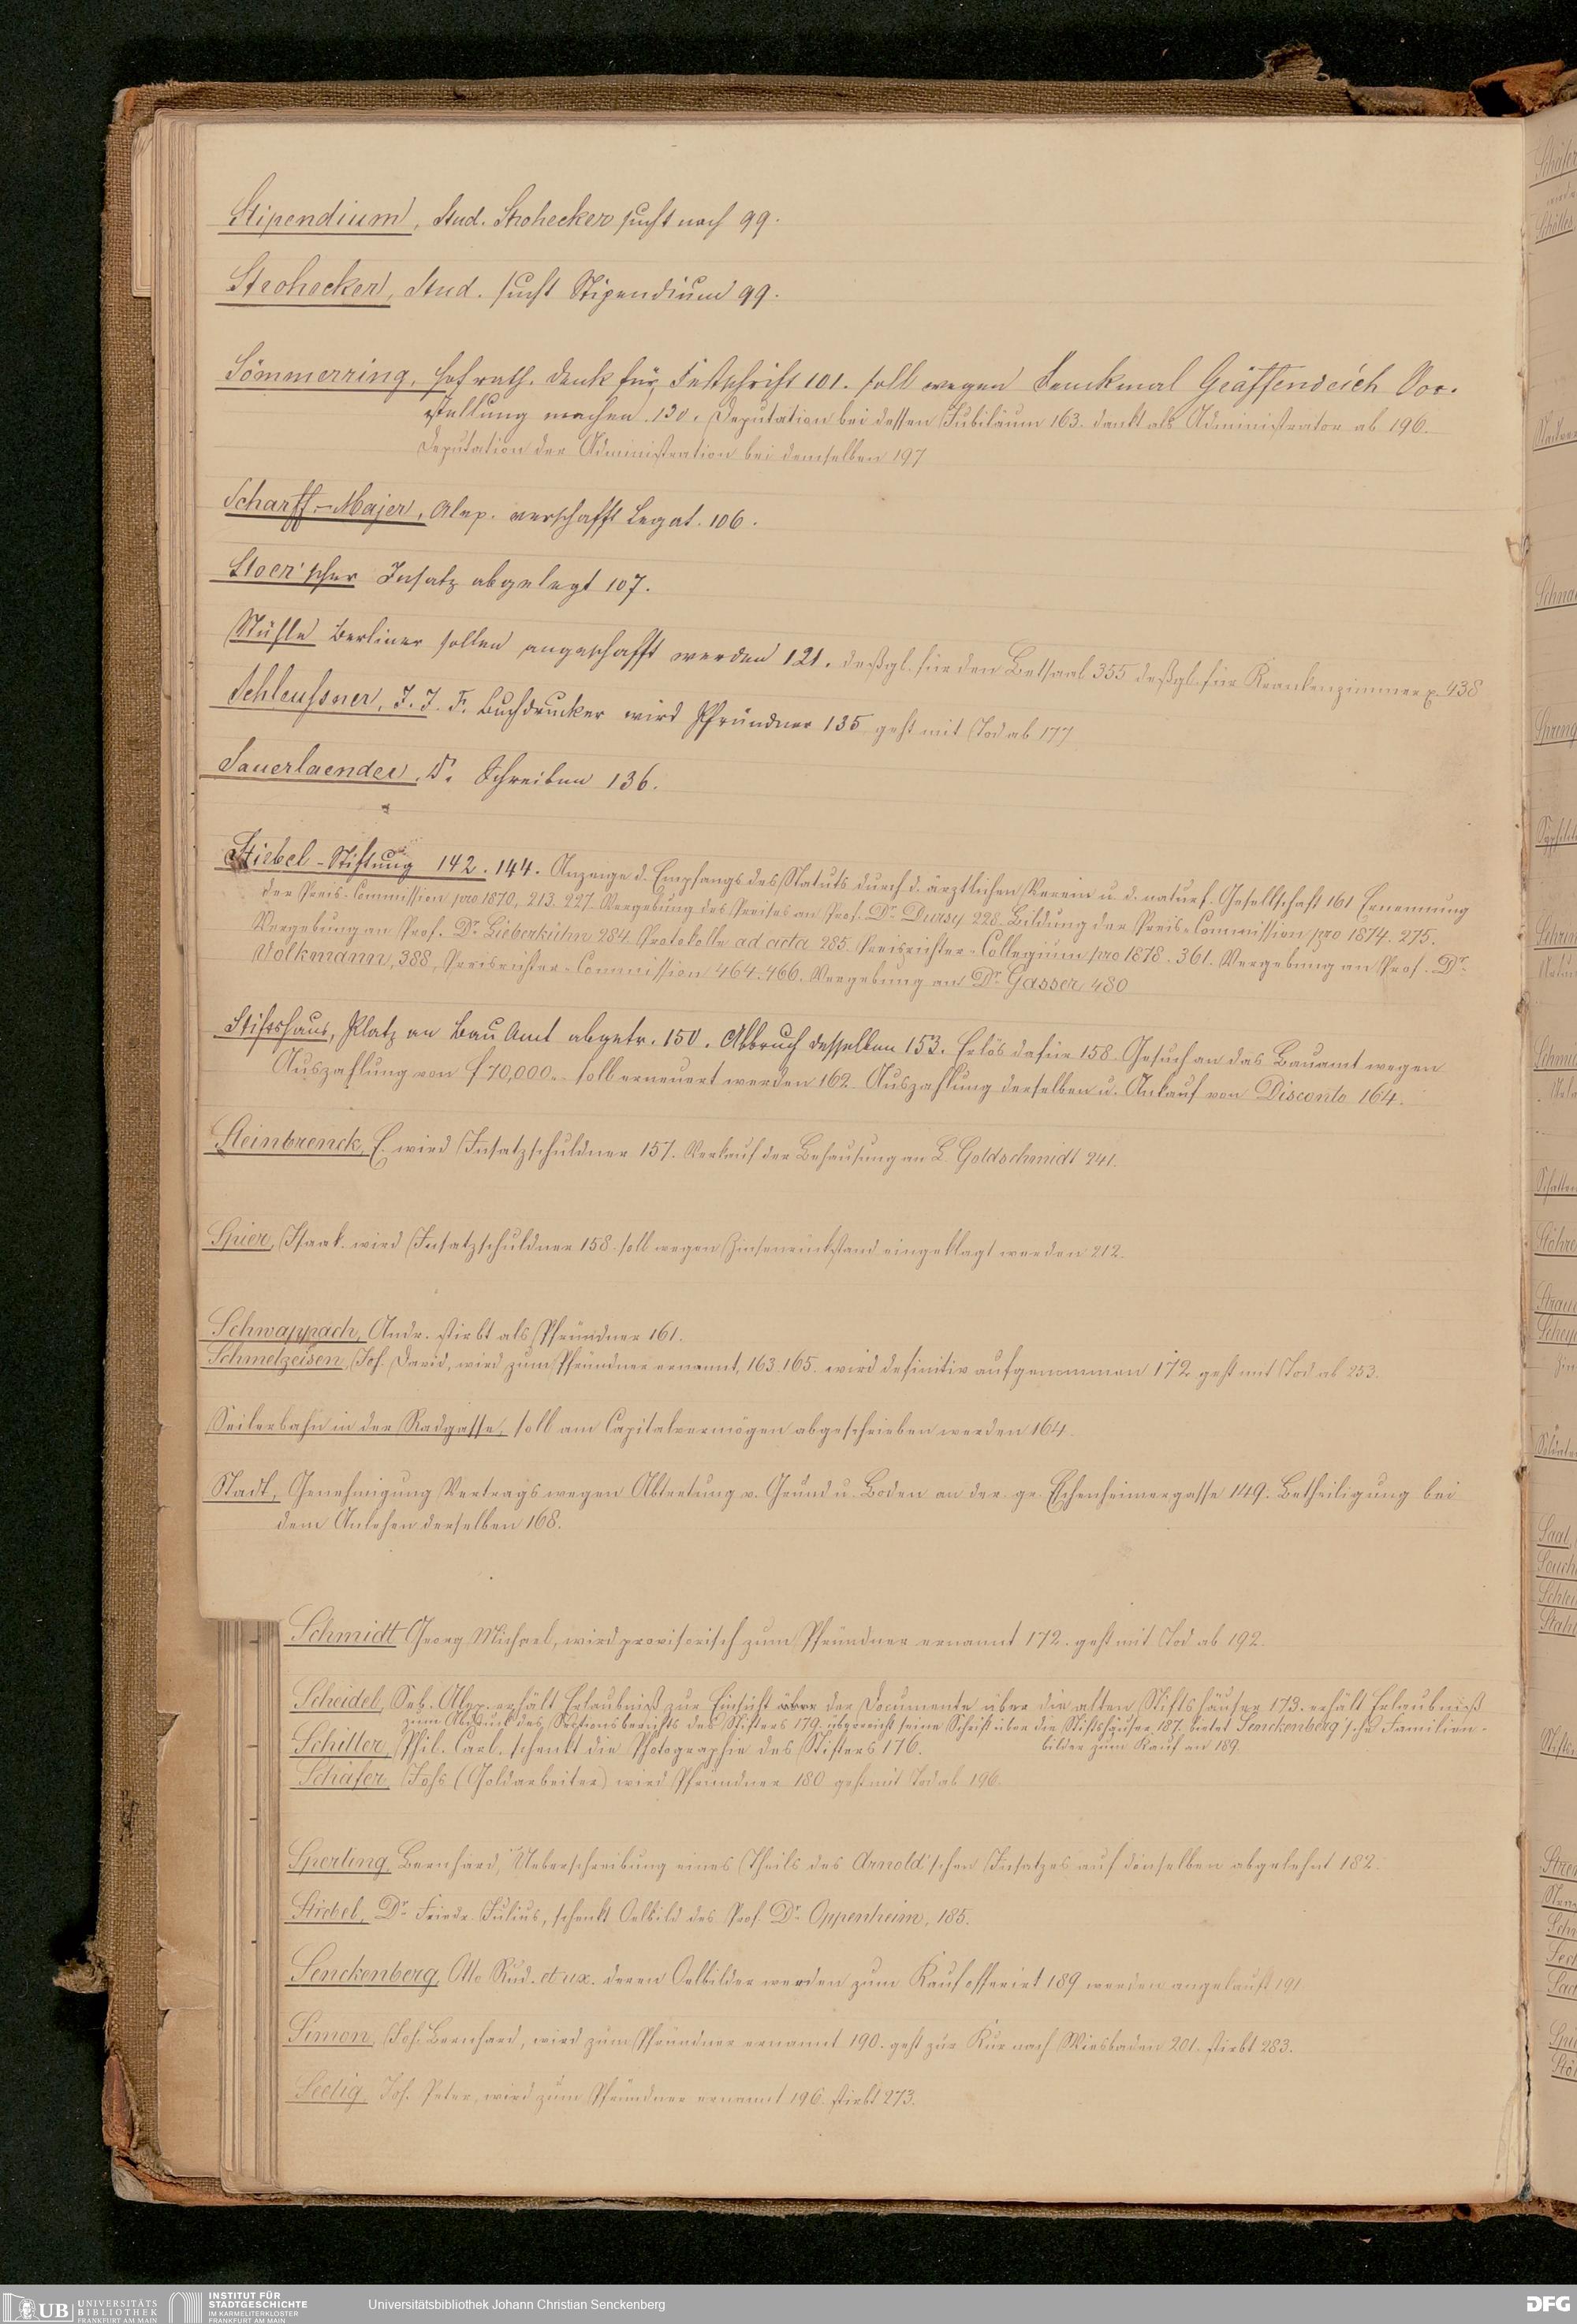 Stipendium, Stud. Strohecker sucht nach 99.
Strohecker, Stud. sucht Stipendium 99.
Sömmerring, Hofrath. Dank für Festschrift 101. soll wegen Denkmal Gräffendeich Vor-
stellung machen. 130. Deputation bei dessen Jubiläum 163. dankt als Administrator ab 196.
Deputation der Administration bei demselben 197
Scharff-Majer, Alex. verschafft Legat. 106.
Stoer'scher Insatz abgelegt 107.
Stühle Berliner sollen angeschafft werden 121. deßgl. für den Betsaal 355 deßgl. für Krankenzimmer p. 438
Schleussner, J. J. F. Buchdrucker wird Pfründner 135 geht mit Tod ab 177
Sauerlaender, Schreiben 136.
Stiebel-Stiftung 142. 144. Anzeige d. Empfangs des Statuts durch d. ärztlichen Verein u. d. naturf. Gesellschaft 161 Ernennung
der Preis-Commission pro 1870, 213. 227. Vergebung des Preises an Prof. Dr. Dursy 228. Bildung der Preis-Commission pro 1874. 275.
Vergebung an Prof. Dr. Lieberkühn 284. Protokolle ad acta 285. Preisrichter-Collegium pro 1878. 361. Vergebung an Prof. Dr.
Volkmann, 388, Preisrichter-Commission 464. 466. Vergebung an Dr. Gasser 480
Stiftshaus, Platz an Bau Amt abgetr. 150. Abbruch desselben 153. Erlös dafür 158. Gesuch an das Bauamt wegen
Auszahlung von f 70,000.- soll erneuert werden 162 Auszahlung derselben u. Ankauf von Disconto 164.
Steinbrenck, E. wird Insatzschuldner 157. Verkauf der Behausung an L. Goldschmidt 241.
Spier, Isaak. wird Insatzschuldner 158. soll wegen Zinsenrückstand eingeklagt werden 212.
Schwappach, Andr. stirbt als Pfründner 161.
Schmelzeisen, Joh. David, wird zum Pfründner ernannt, 163. 165. wird definitiv aufgenommen 172 geht mit Tod ab 253.
Seilerbahn in der Radgasse, soll am Capitalvermögen abgeschrieben werden 164.
Stadt, Genehmigung Vertrags wegen Abtretung v. Grund u. Boden an der gr. Eschenheimergasse 149. Betheiligung bei
dem Anlehen derselben 168.
Schmidt Georg Michael, wird provisorisch zum Pfründner ernannt 172. geht mit Tod ab 192.
Scheidel, Seb. Alex. erhält Erlaubniß zur Einsicht über der Documente über die alten Stiftshäuser 173. erhält Erlaubniß
zum Abdruck des Sectionsberichts des Stifters 179. überreicht seine Schrift über die Stiftshäuser 187. bietet Senckenberg'sche Familien-
bilder zum Kauf an 189.
Schiller, Phil. Carl. schenkt die Photographie des Stifters 176.
Schäfer, Johs (Goldarbeiter) wird Pfründner 180 geht mit Tod ab 196.
Sperling, Bernhard, Ueberschreibung eines Theils des Arnold'schen Insatzes auf denselben abgelehnt 182.
Stiebel, Dr. Friedr. Julius, schenkt Oelbild des Prof. Dr. Oppenheim, 185.
Senckenberg, Otto Rud. et ux. deren Oelbilder werden zum Kauf offerirt 189 werden angekauft 191
Simon, Joh. Bernhard, wird zum Pfründner ernannt 190. geht zur Kur nach Wiesbaden 201. stirbt 283.
Seelig, Joh. Peter, wird zum Pfründner ernannt 196. stirbt 273.
UB UNIVERSITÄTS BIBLIOTHEK FRANKFURT AM MAIN
INSTITUT FÜR STADTGESCHICHTE IM KARMELITERKLOSTER FRANKFURT AM MAIN
Universitätsbibliothek Johann Christian Senckenberg
DFG